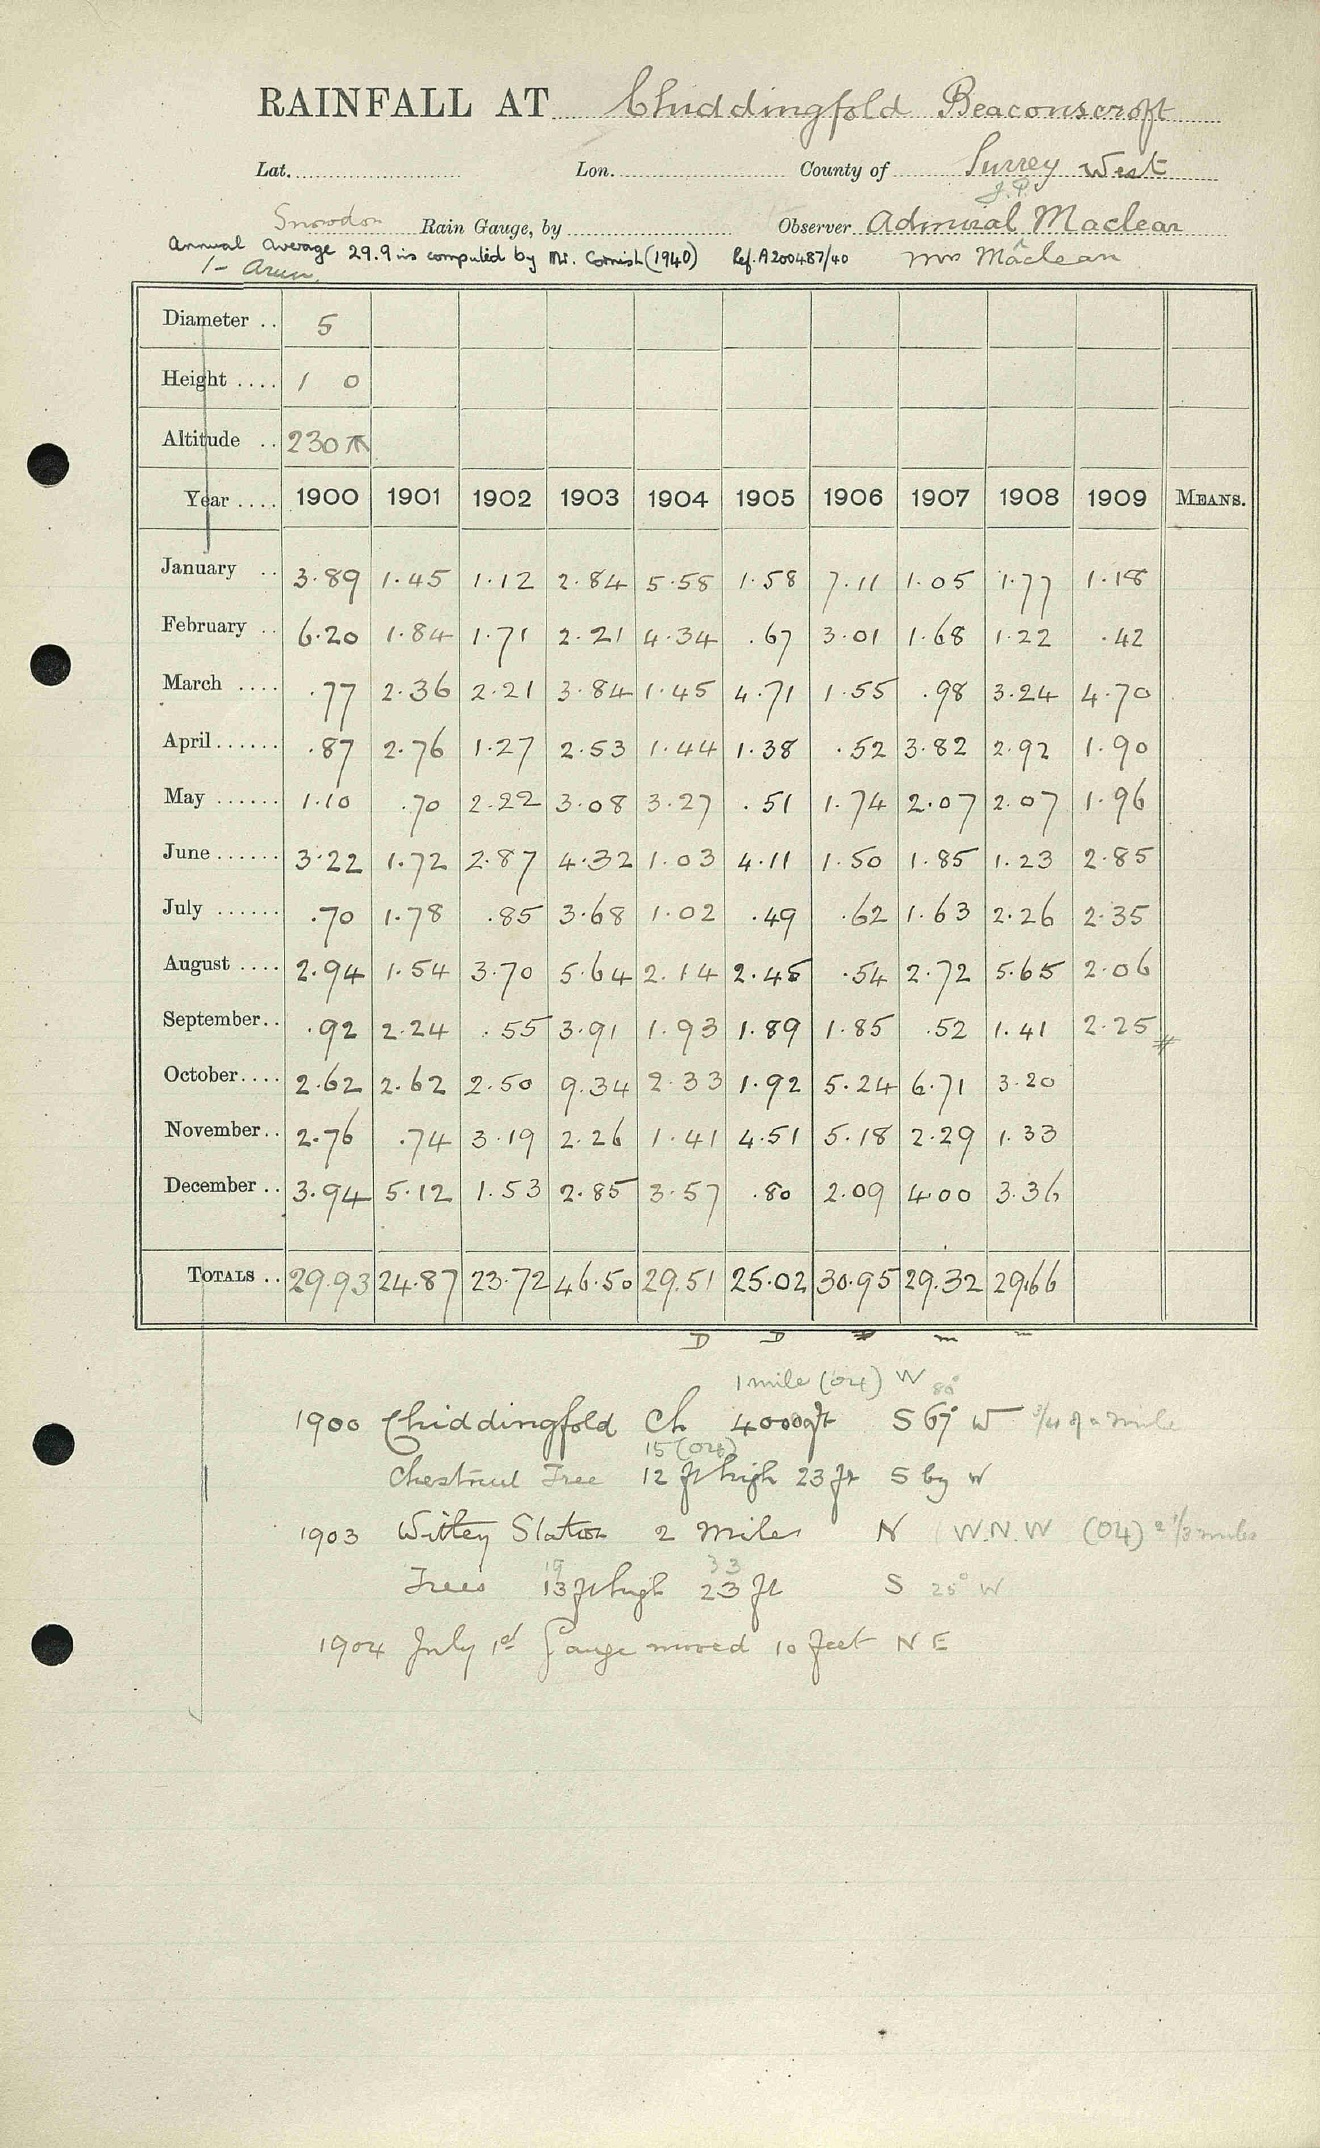 RAINFALL AT Chiddingfold Beaconscroft
Lat. Lon. County of Surrey West
J.P.
Snowdon Rain Gauge, by Observer Admiral Maclear
Annual average 29.9 ins computed by Mr. Cornish (1940) Ref. A200487/40 Mrs Maclear
1- Arun.
Diameter .. 5
Height .... 1 0
Altitude .. 230
Year .... 1900 1901 1902 1903 1904 1905 1906 1907 1908 1909 MEANS.
January .. 3.89 1.45 1.12 2.84 5.58 1.58 7.11 1.05 1.77 1.18
February .. 6.20 1.84 1.71 2.21 4.34 .67 3.01 1.68 1.22 .42
March .... .77 2.36 2.21 3.84 1.45 4.71 1.55 .98 3.24 4.70
April...... .87 2.76 1.27 2.53 1.44 1.38 .52 3.82 2.92 1.90
May ...... 1.10 .70 2.22 3.08 3.27 .51 1.74 2.07 2.07 1.96
June...... 3.22 1.72 2.87 4.32 1.03 4.11 1.50 1.85 1.23 2.85
July ...... .70 1.78 .85 3.68 1.02 .49 .62 1.63 2.26 2.35
August .... 2.94 1.54 3.70 5.64 2.14 2.45 .54 2.72 5.65 2.06
September.. .92 2.24 .55 3.91 1.93 1.89 1.85 .52 1.41 2.25
October.... 2.62 2.62 2.50 9.34 2.33 1.92 5.24 6.71 3.20
November.. 2.76 .74 3.19 2.26 1.41 4.51 5.18 2.29 1.33
December .. 3.94 5.12 1.53 2.85 3.57 .80 2.09 4.00 3.36
TOTALS .. 29.93 24.87 23.72 46.50 29.51 25.02 30.95 29.32 29.66
D D m
1 mile (04) W 80°
1900 Chiddingfold Ch 4000ft S 67° W 3/4 of a mile
15 (04)
Chestnut Tree 12 ft high 23 ft S by W
1903 Witley Station 2 Miles N W.N.W (04) 2 1/3 miles
19 33
Trees 13 ft high 23 ft S 25° W
1904 July 1st Gauge moved 10 feet N E